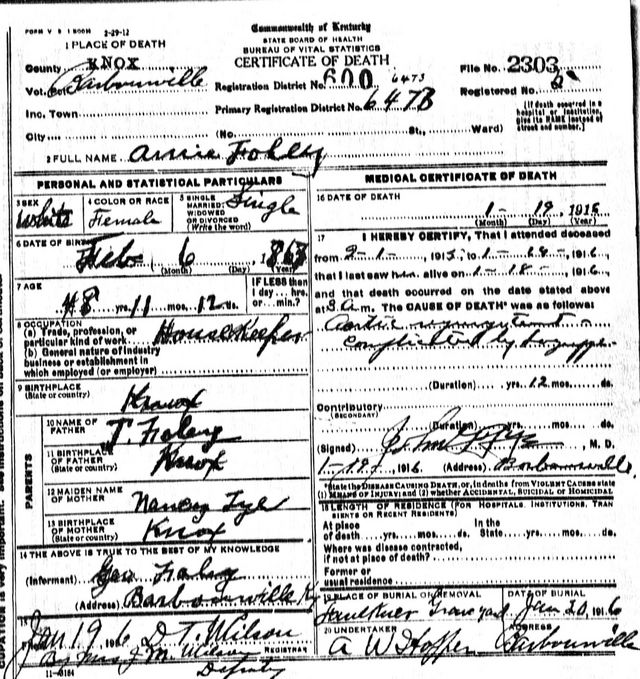 FORM V S 1 2-29-12
Commonwealth of Kentucky
STATE BOARD OF HEALTH
BUREAU OF VITAL STATISTICS
CERTIFICATE OF DEATH
1 PLACE OF DEATH
County KNOX
Vot. Pct. Barbourville
Inc. Town
City
Registration District No. 600 6473
Primary Registration District No. 6473
(No. St., Ward)
File No. 2303
Registered No.
[If death occurred in a hospital or institution, give its NAME instead of street and number.]
2 FULL NAME Annie Foley
PERSONAL AND STATISTICAL PARTICULARS
3 SEX White
4 COLOR OR RACE Female
5 SINGLE MARRIED WIDOWED OR DIVORCED (Write the word) Single
6 DATE OF BIRTH Feb 6
(Month) (Day) (Year)
7 AGE
48 yrs. 11 mos. 12 ds.
IF LESS than 1 day... hrs. or min.?
8 OCCUPATION
(a) Trade, profession, or particular kind of work HouseKeeper
(b) General nature of industry business or establishment in which employed (or employer)
9 BIRTHPLACE (State or country) Knox
PARENTS
10 NAME OF FATHER T. Foley
11 BIRTHPLACE OF FATHER (State or country) Knox
12 MAIDEN NAME OF MOTHER Nancy
13 BIRTHPLACE OF MOTHER (State or country) Knox
14 THE ABOVE IS TRUE TO THE BEST OF MY KNOWLEDGE
(Informant) Geo Foley
(Address) Barbourville Ky
15
Filed Jan 19 1916 D T. Wilson
REGISTRAR
By Mrs J M. Wilson
Deputy
11-
MEDICAL CERTIFICATE OF DEATH
16 DATE OF DEATH
1- 19 191
(Month) (Day) (Year)
17 I HEREBY CERTIFY, That I attended deceased
from 2-1- 1915, to 1- 1916
that I last saw h alive on 1-18- 1916
and that death occurred on the date stated above
at 3 a.m. The CAUSE OF DEATH* was as follows:
Aortic
complicated by
(Duration) yrs. 12 mos. ds.
Contributory
(SECONDARY)
(Duration) yrs. mos. ds.
(Signed) M. D.
1-19 1916 (Address) Barbourville
*State the DISEASE CAUSING DEATH, or, in deaths from VIOLENT CAUSES state
(1) MEANS OF INJURY; and (2) whether ACCIDENTAL, SUICIDAL or HOMICIDAL
18 LENGTH OF RESIDENCE (FOR HOSPITALS, INSTITUTIONS, TRANSIENTS OR RECENT RESIDENTS)
At place of death yrs. mos. ds. In the State yrs. mos. ds.
Where was disease contracted, if not at place of death?
Former or usual residence
19 PLACE OF BURIAL OR REMOVAL
Faulkner Graveyard
DATE OF BURIAL
Jan 20, 1916
20 UNDERTAKER
A W Hopper
ADDRESS
Barbourville